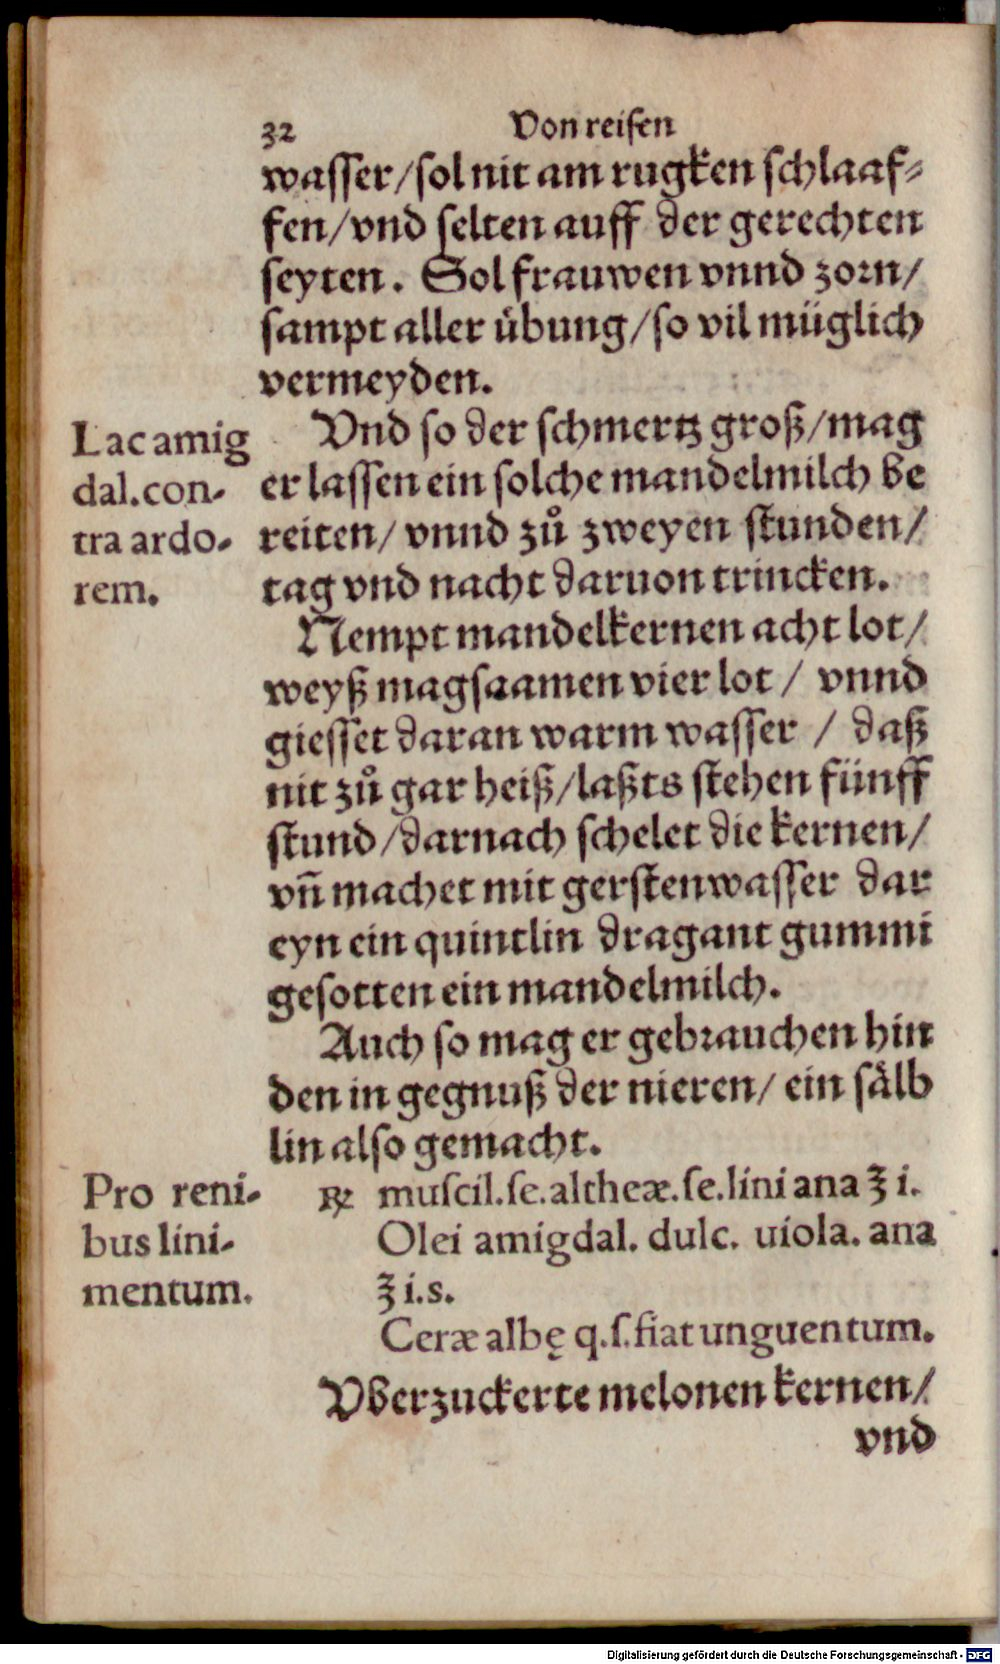 32 Von reisen
wasser/sol nit am rugken schlaaf⸗
fen/vnd selten auff der gerechten
seyten. Sol frauwen vnnd zorn/
sampt aller übung/so vil müglich
vermeyden.
Lac amig
dal. con-
tra ardo-
rem.
Vnd so der schmertz groß/mag
er lassen ein solche mandelmilch be
reiten/ vnnd zů zweyen stunden/
tag vnd nacht daruon trincken.
Nempt mandelkernen acht lot/
weyß magsaamen vier lot/ vnnd
giesset daran warm wasser / daß
nit zů gar heiß/laßts stehen fünff
stund/darnach schelet die kernen/
vñ machet mit gerstenwasser dar
eyn ein quintlin dragant gummi
gesotten ein mandelmilch.
Auch so mag er gebrauchen hin
den in gegnuß der nieren/ ein sälb
lin also gemacht.
Pro reni-
bus lini-
mentum.
℞ muscil. se. altheæ. se. lini ana ʒ i.
Olei amigdal. dulc. uiola. ana
ʒ i. s.
Ceræ albę q. s. fiat unguentum.
Vberzuckerte melonen kernen/
vnd
Digitalisierung gefördert durch die Deutsche Forschungsgemeinschaft - DFG